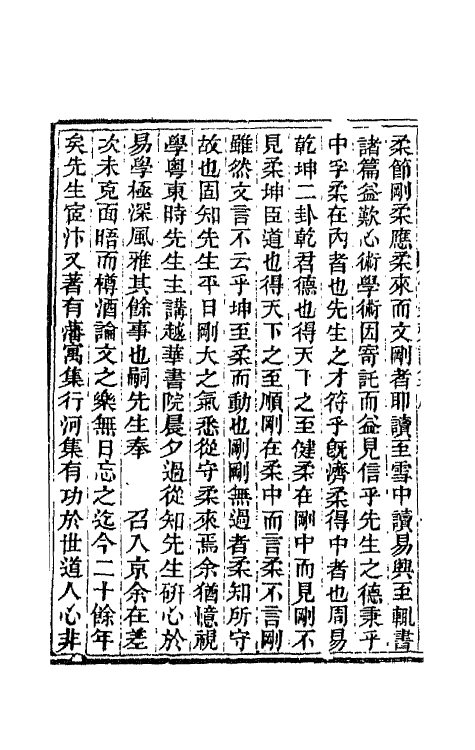 柔節剛柔應柔來而文剛者耶讀至雪中讀易興至輒書
諸篇益歎心術學術因寄託而益見信乎先生之德秉乎
中孚柔在內者也先生之才符乎旣濟柔得中者也周易
乾坤二卦乾君德也得天下之至健柔在剛中而見剛不
見柔坤臣道也得天下之至順剛在柔中而言柔不言剛
雖然文言不云乎坤至柔而動也剛剛無過者柔知所守
故也固知先生平日剛大之氣悉從守柔來焉余猶憶視
學粵東時先生主講越華書院晨夕過從知先生硏心於
易學極深風雅其餘事也嗣先生奉 召入京余在差
次未克面晤而樽酒論文之樂無日忘之迄今二十餘年
矣先生宦汴又著有藩寓集行河集有功於世道人心非